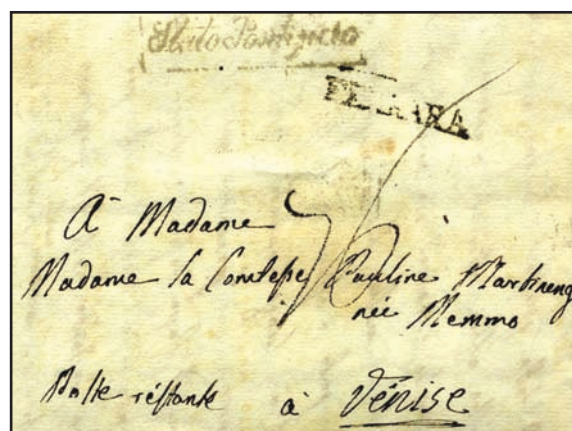 Stato Pontificio
FERRARA
À Madame
Madame la Comtesse Pauline Martineng
née Memmo
Poste réstante à Vénise